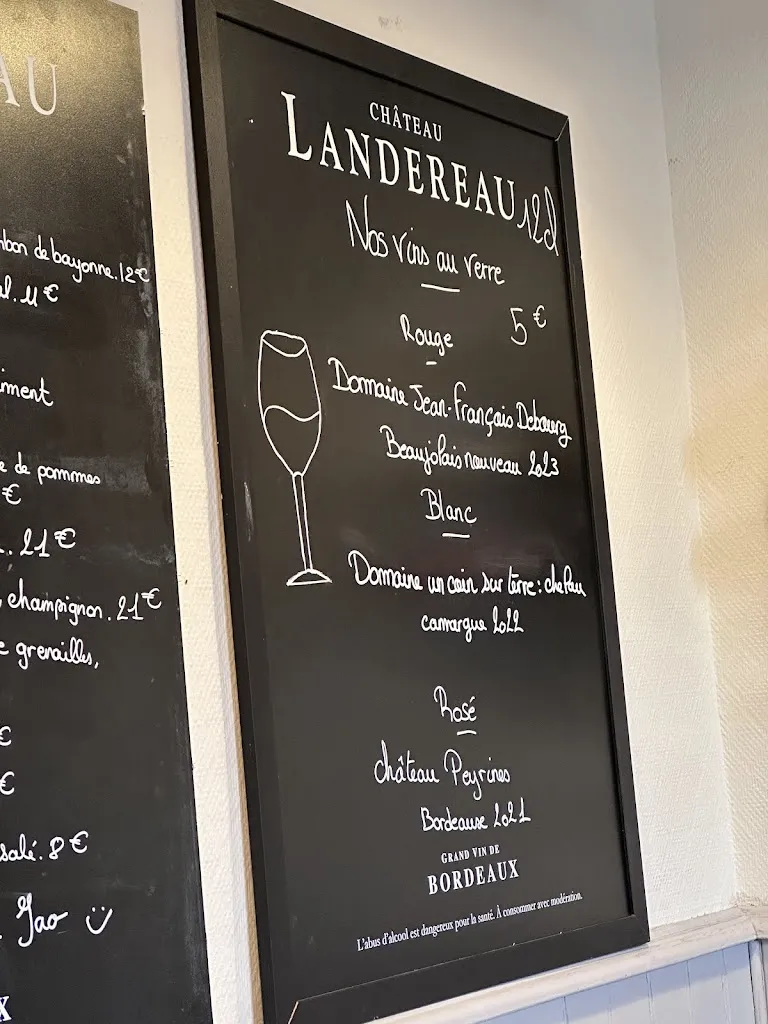 AU
bon de bayonne. 12€
al. 11€
iment
e de pommes
€
. 21€
champignon. 21€
e grenailles,
€
€
salé. 8€
Jao
X
CHÂTEAU
LANDEREAU 12cl
Nos vins au verre
Rouge 5€
Domaine Jean-François Debourg
Beaujolais nouveau 2023
Blanc
Domaine un coin sur terre:
camargue 2022
Rosé
château Peyrines
Bordeaux 2021
GRAND VIN DE
BORDEAUX
L'abus d'alcool est dangereux pour la santé. À consommer avec modération.